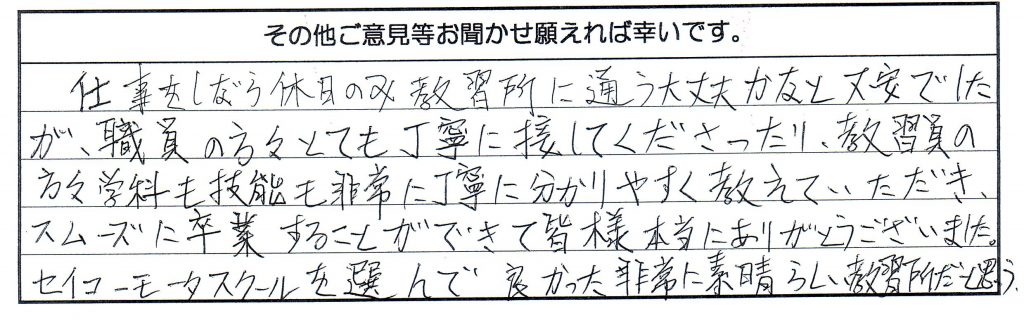 その他ご意見等お聞かせ願えれば幸いです。
仕事をしながら休日のみ教習所に通う大丈夫かなと不安でした
が、職員の方々とても丁寧に接してくださったり、教習員の
方々学科も技能も非常に丁寧に分かりやすく教えていただき、
スムーズに卒業することができて皆様本当にありがとうございました。
セイコーモータスクールを選んで良かった非常に素晴らしい教習所だと思う。